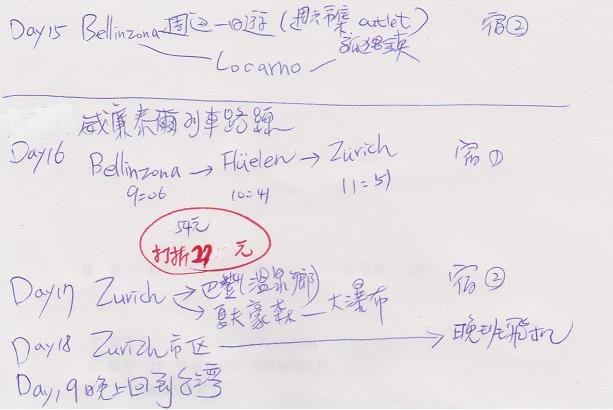 Day15 Bellinzona周边一日遊(週六市集 outlet. 宿②
Locarno
威廉泰爾列車路線
Day16 Bellinzona → Flüelen → Zürich 宿①
9=06 10=41 11=51
54元
打折27 元
Day17 Zurich → 巴登(温泉鄉) 宿②
→ 夏夫豪森 — 大瀑布
Day18 Zurich市区 → 晚班飛机
Day19晚上回到台湾